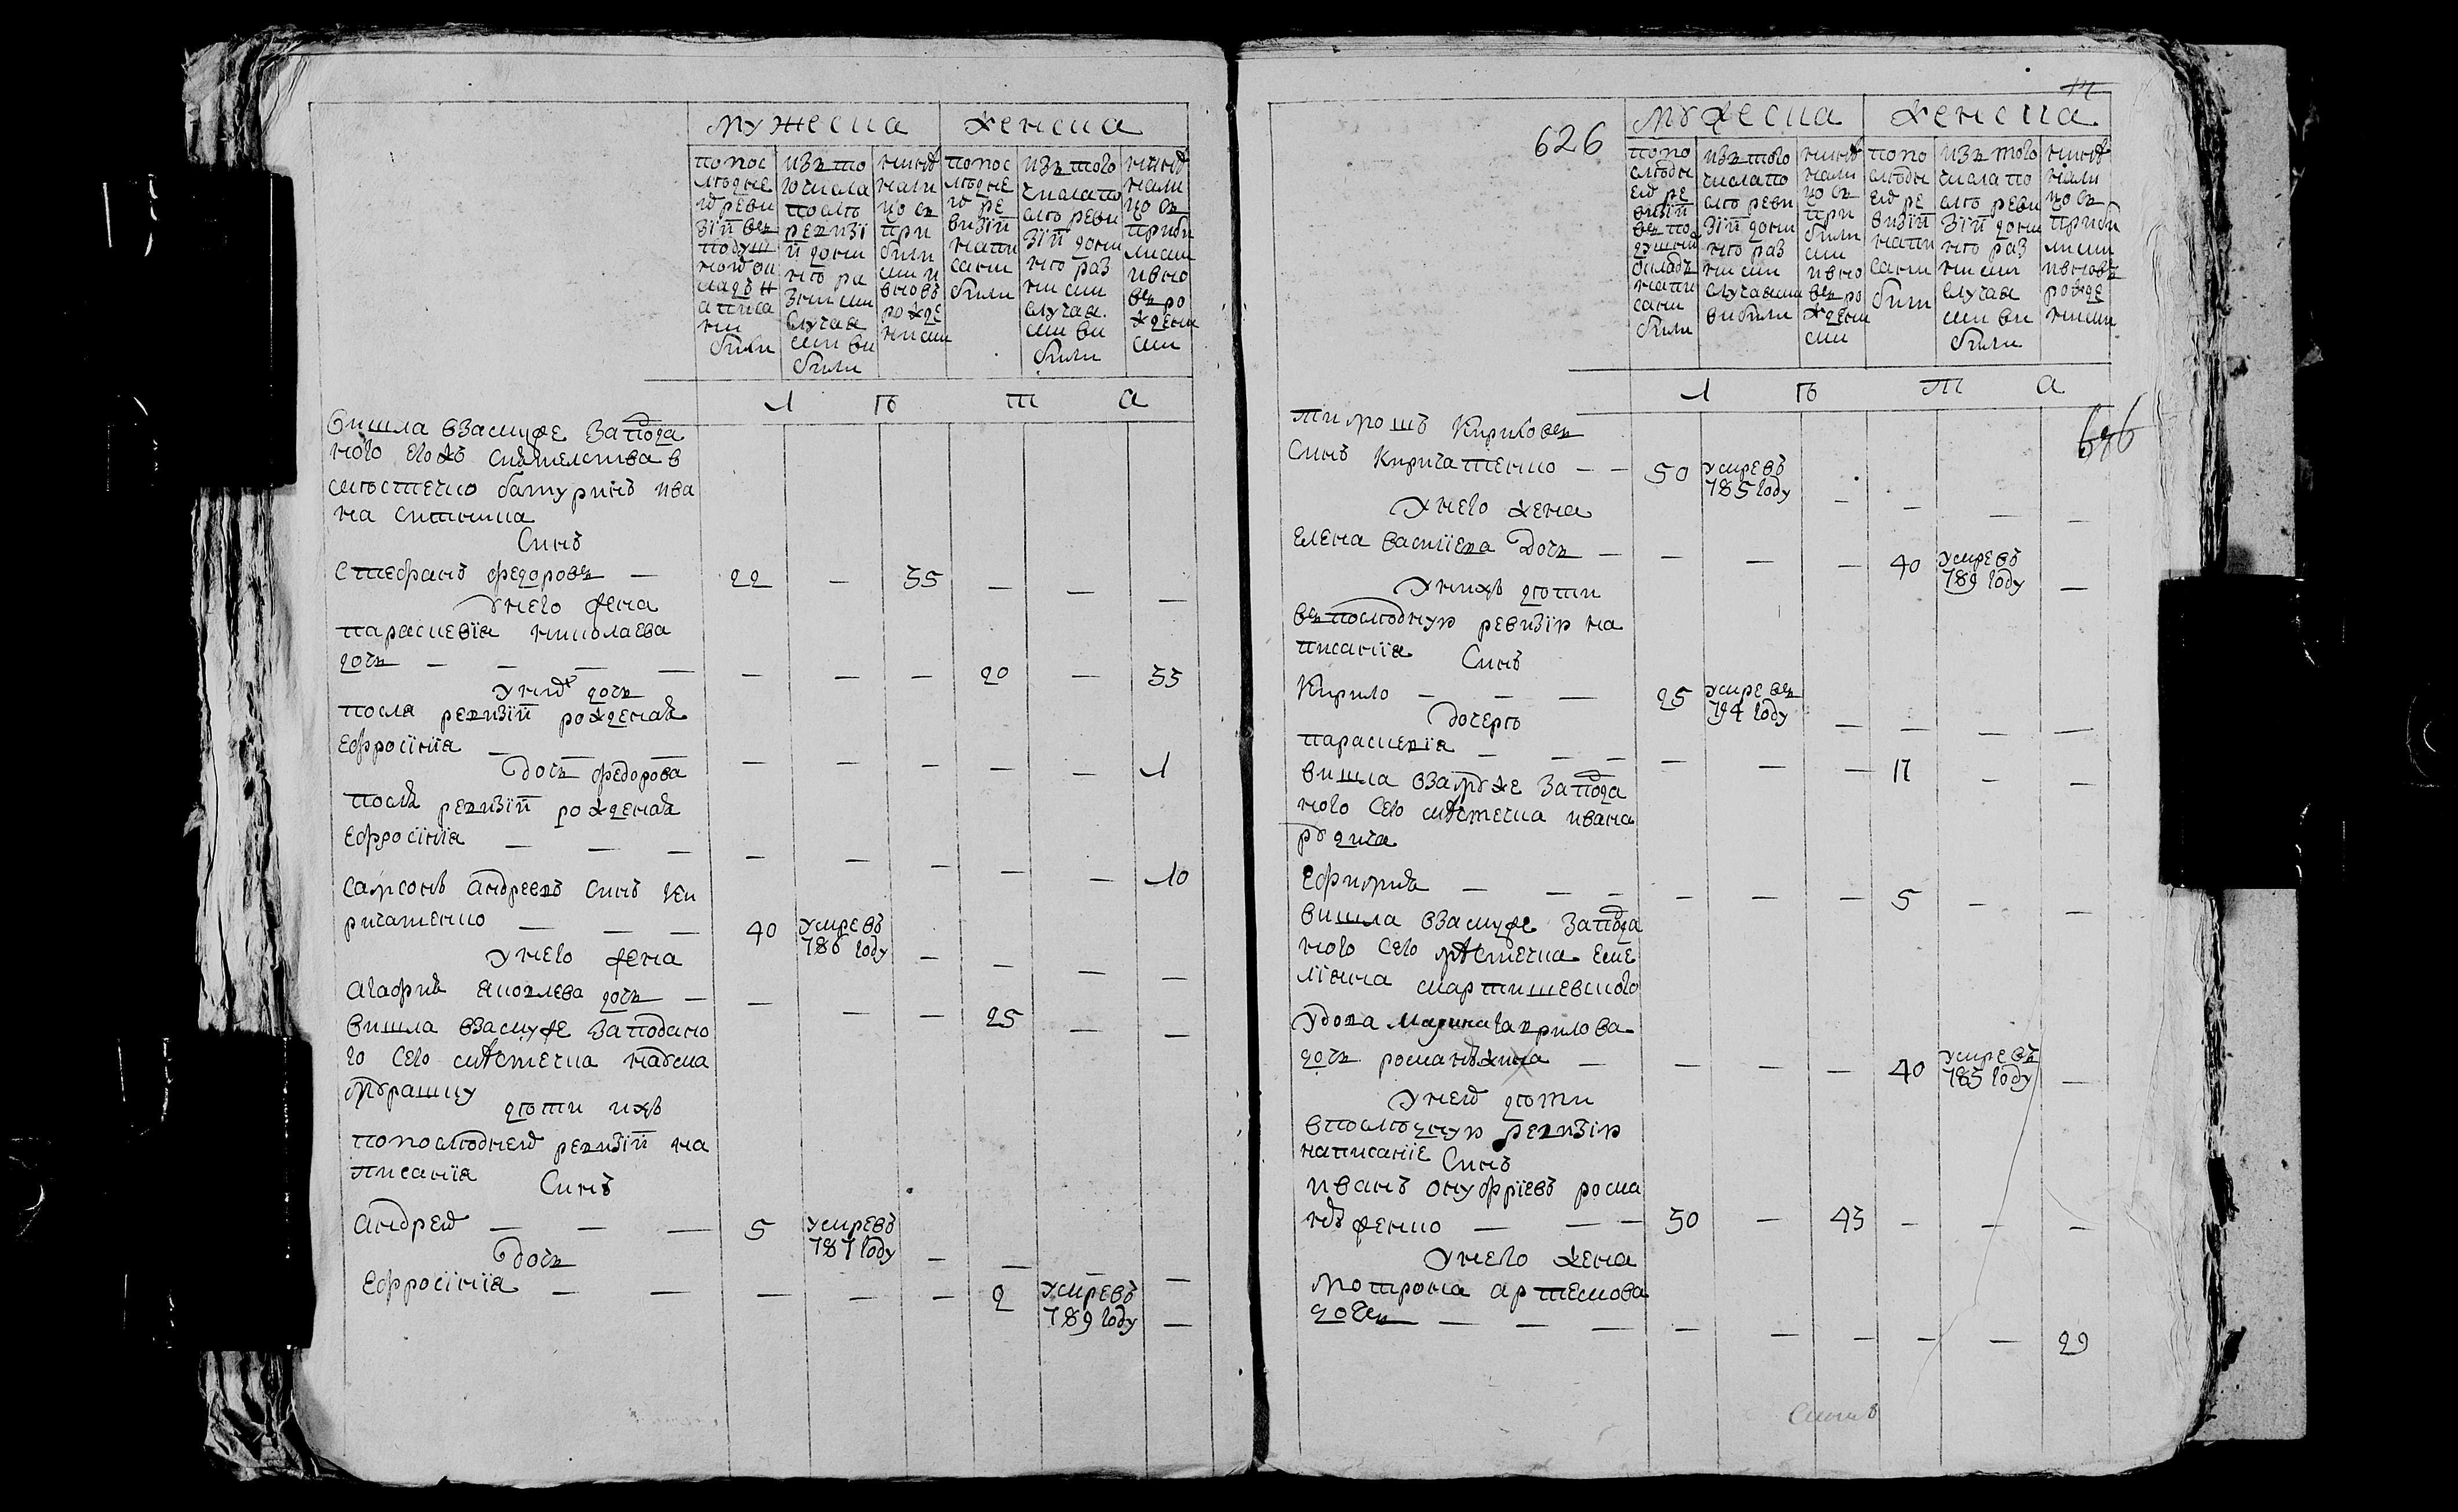 мужеска женска
попос
лѣдне
й реви
зїй въ
подуш
ной ок
ладъ н
аписа
ни
были
изъ то
го числа
послѣ
ревизі
й дочи
нго ра
зними
случая
ми ви
были
нинѣ
нали
цо съ
при
были
ми и
вновъ
рожде
ними
попос
лѣдне
й ре
визїй
напи
сани
были
изъ того
числа по
слѣ реви
зїй дочи
нго раз
ними
случая
ми ви
были
нинѣ
нали
цо съ
приби
лими
ивно
въ ро
ждени
ми
л ѣ т а
вишла взамуже за пода
ного его жъ сиятелства в
мѣстечко батуринъ ива
на ситника
Синъ
Стефанъ федоровъ — 22 — 35 — — —
У него жена
параскевїя николаева
дочъ — — — — — — — 20 — 35
У ней дочъ
посля ревизїй рожденая
Ефросїнїя — — — — — — — — 1
Дочъ федорова
послѣ ревизїй рожденая
Ефросїнїя — — — — — — — — 10
Самсонъ андреевъ синъ ки
ричатенко — — — 40 умре въ
786 году — — — —
У него жена
агафия яковлева дочъ — — — — 25 — —
вишла взамуже заподано
го сего мѣстечка наума
мурашку
дѣти ихъ
попослѣдней ревизїй на
писанїя Синъ
андрей — — — 5 умре въ
787 году — — — —
Дочъ
Ефросїнїя — — — — — 2 умре въ
789 году —
14
626
мужеска женска
попо
слѣдн
ей ре
визїй
въ по
душни
окладъ
напи
сани
были
изъ того
числа по
слѣ реви
зїй дочи
нго раз
ними
случаями
вибили
нинѣ
нали
цо съ
при
были
ми
ивно
въ ро
ждени
ми
попо
слѣдн
ей ре
визїй
напи
сани
были
изъ того
числа по
слѣ реви
зїй дочи
нго раз
ними
случая
ми ви
были
нинѣ
нали
цо съ
приби
лими
ивновъ
рожде
ними
л ѣ т а
626
тимошъ Кириловъ
Синъ Киричатенко — — 50 умре въ
785 году — — — —
У него жена
Елена васиїева Дочъ — — — — 40 умре въ
789 году —
У нихъ дѣти
въ послѣдную ревизїю на
писанїя Синъ
Кирило — — — 25 умре въ
794 году — — — —
Дочерѣ
параскевїя — — — — — — 17 — —
вишла взамуже за пода
ного Сего мѣстечка ивана
рудича
Ефимия — — — — — — 5 — —
вишла взамуже за пода
ного Сего мѣстечка Еме
лїяна мартишевского
удова Марина гаврилова
дочъ романѣжина — — — — 40 умре въ
785 году —
У ней дѣти
впослѣдную ревизїю
написанїе Синъ
иванъ онуфрїевъ рома
нѣженко — — — 30 — 43 — — —
У него жена
мотрона артемова
дочъ — — — — — — — — 29